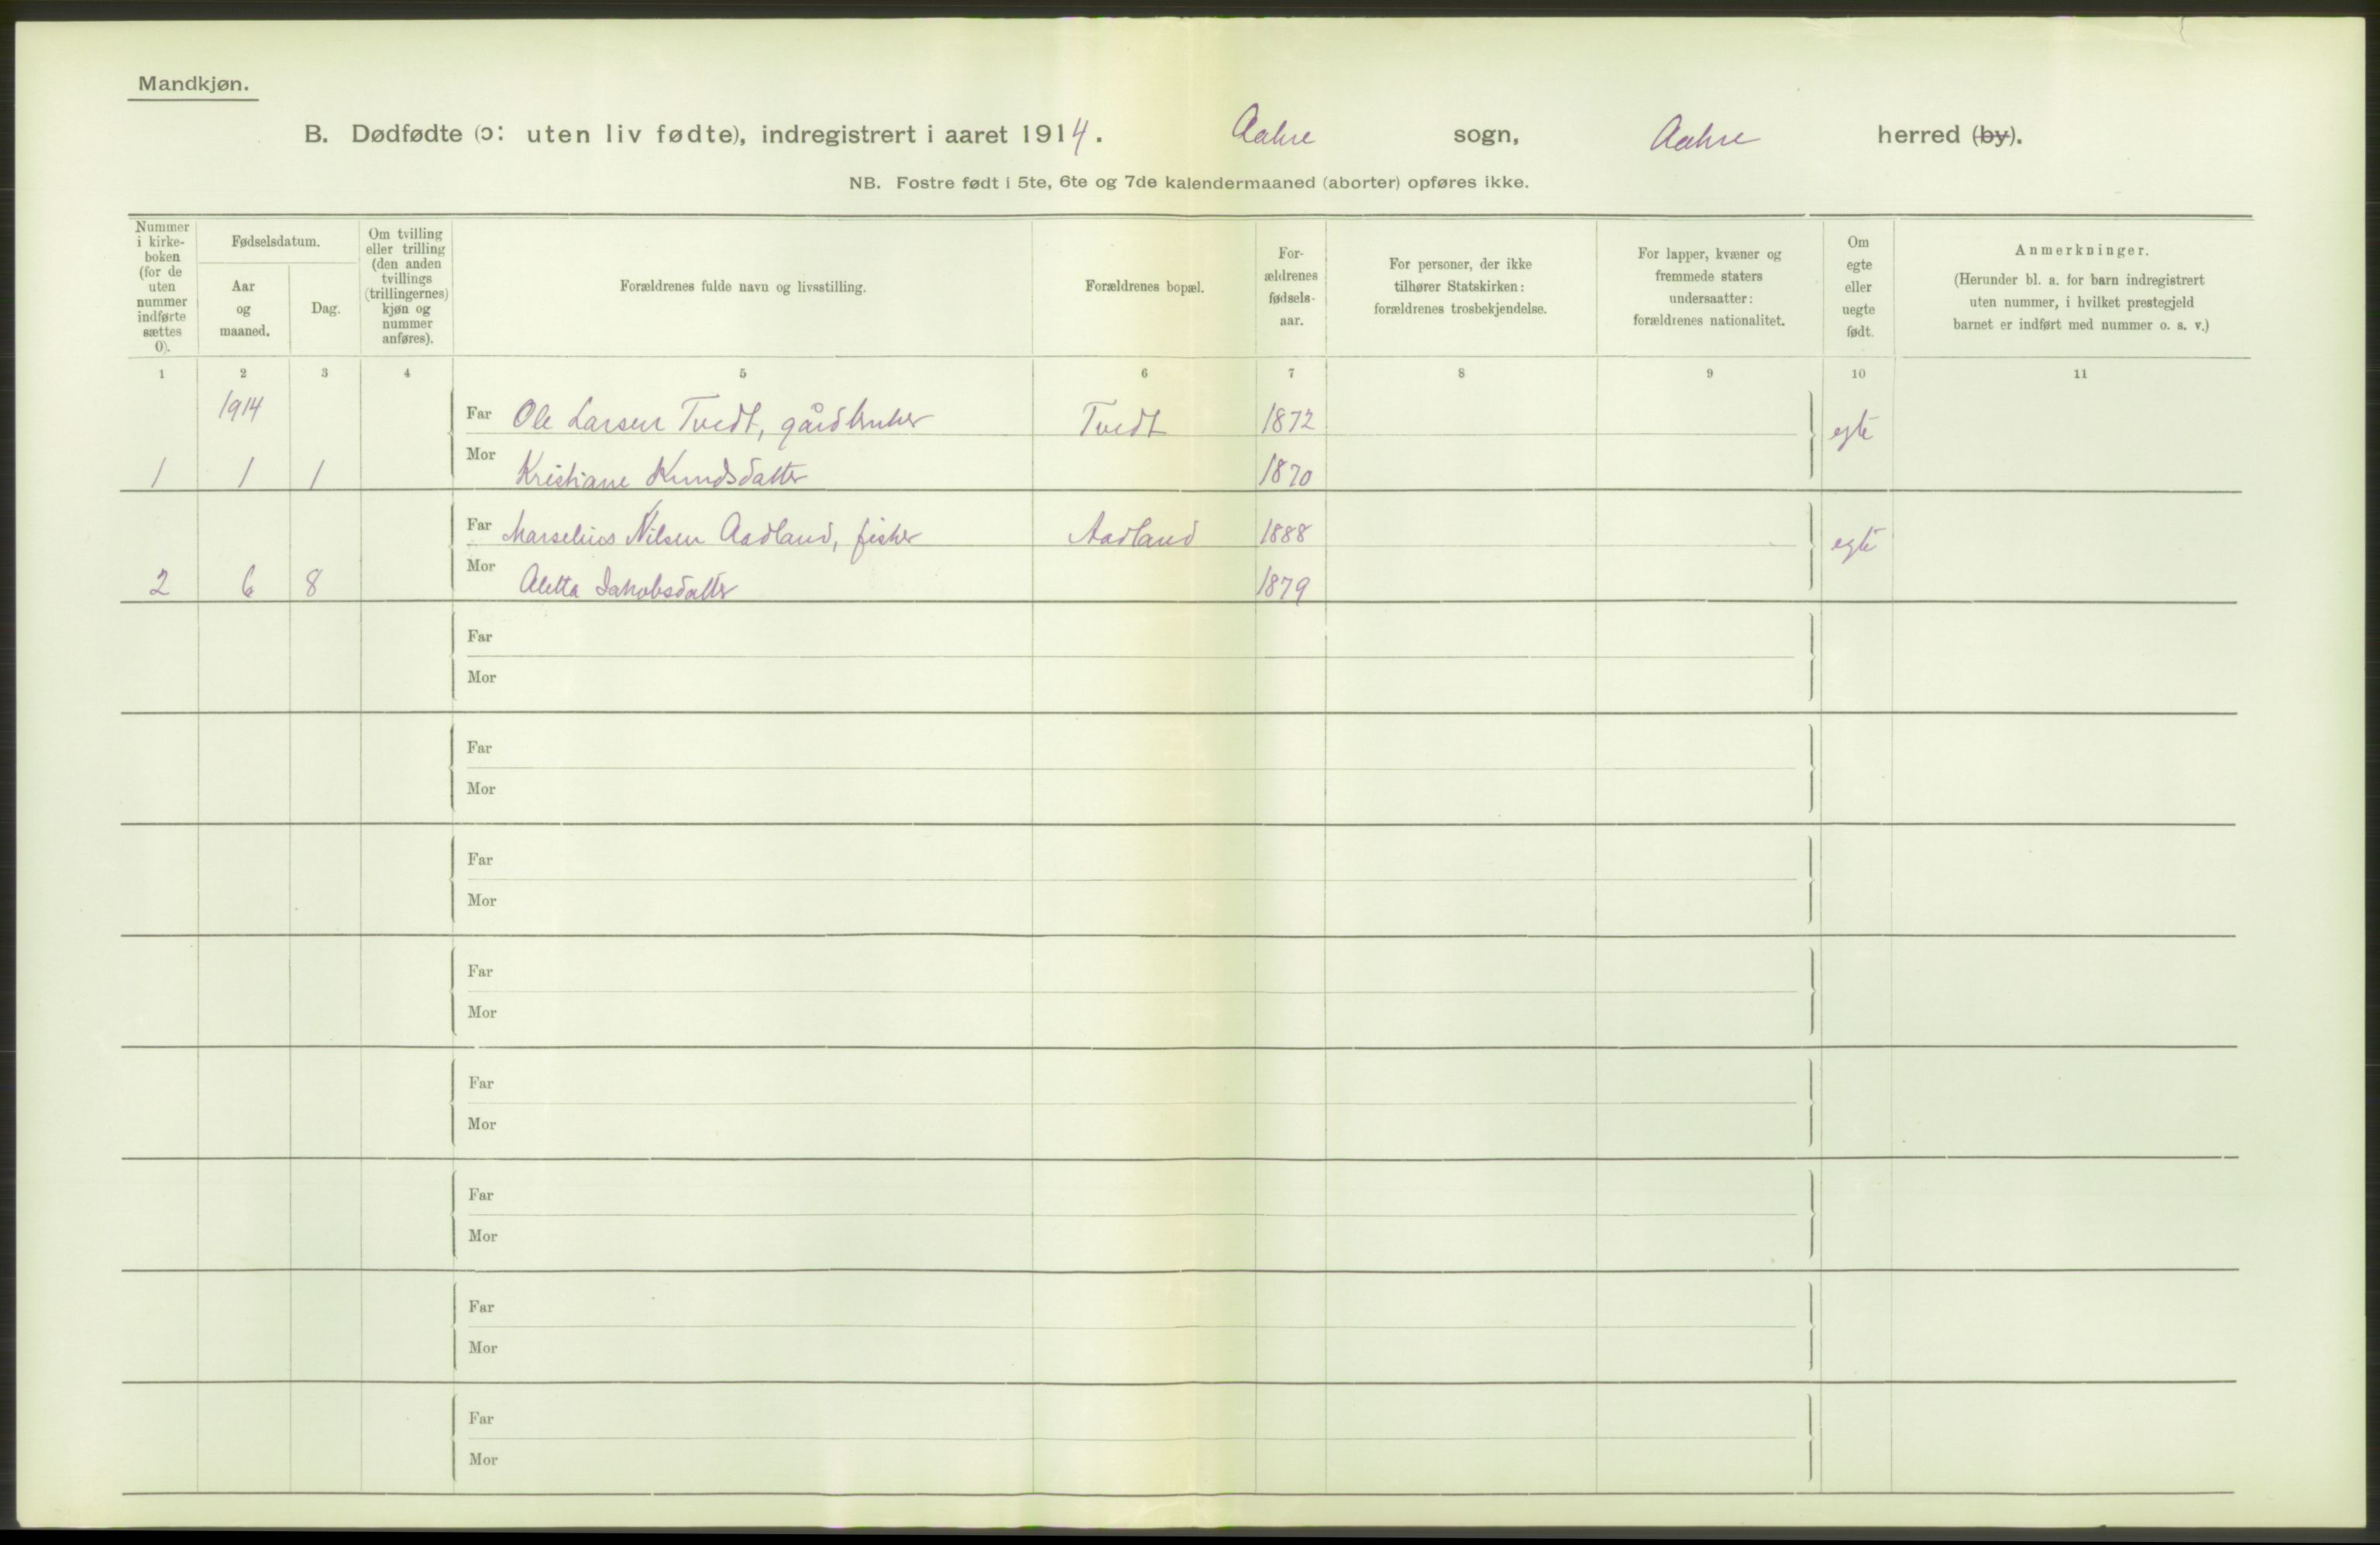 Mandkjøn.
B. Dødfødte (ɔ: uten liv fødte), indregistrert i aaret 1914. Aakre sogn, Aakre herred (by).
NB. Fostre født i 5te, 6te og 7de kalendermaaned (aborter) opføres ikke.
Nummer i kirke- boken (for de uten nummer indførte sættes 0).
Fødselsdatum.
Aar og maaned.
Dag.
Om tvilling eller trilling (den anden tvillings (trillingernes) kjøn og nummer anføres).
Forældrenes fulde navn og livsstilling.
Forældrenes bopæl.
For- ældrenes fødsels- aar.
For personer, der ikke tilhører Statskirken: forældrenes trosbekjendelse.
For lapper, kvæner og fremmede staters undersaatter: forældrenes nationalitet.
Om egte eller uegte født.
Anmerkninger.
(Herunder bl. a. for barn indregistrert uten nummer, i hvilket prestegjeld barnet er indført med nummer o. s. v.)
1 2 3 4 5 6 7 8 9 10 11
1914 Far Ole Larsen Tvedt, gårdbruker Tvedt 1872 egte
1 1 1 Mor Kristiane Knudsdatter 1870
Far Marselius Nilsen Aadland, fisker Aadland 1888 egte
2 6 8 Mor Aletta Jakobsdatter 1879
Far
Mor
Far
Mor
Far
Mor
Far
Mor
Far
Mor
Far
Mor
Far
Mor
Far
Mor